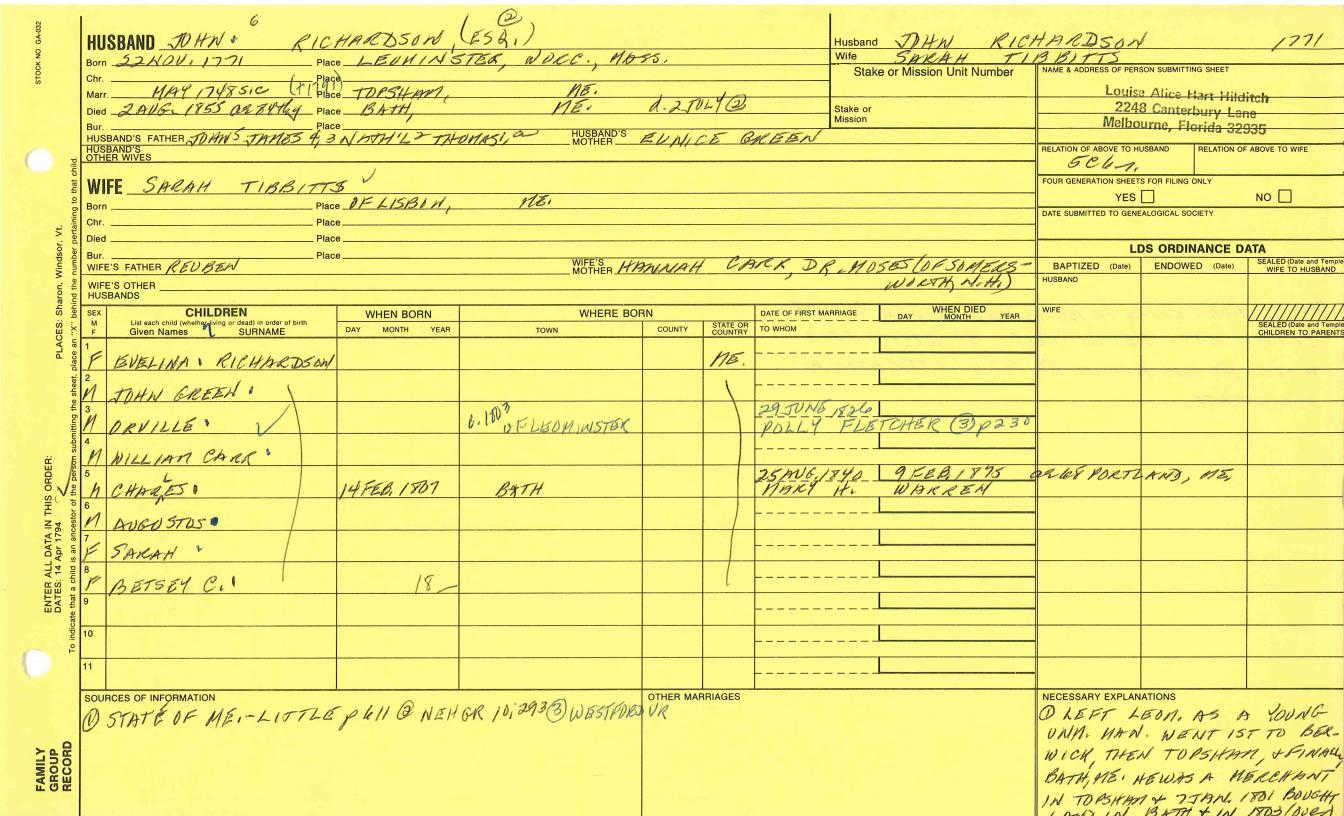 STOCK NO GA-032
6
②
HUSBAND JOHN RICHARDSON, (ESQ.)
Born 22 NOV. 1771 Place LEOMINSTER, WORC., MASS.
Chr. Place
Marr. MAY 1748 SIC Place TOPSHAM, ME.
Died 2 AUG. 1855 ae 84y Place BATH, ME. d. 2 JULY ②
Bur.
HUSBAND'S FATHER JOHN 5 JAMES 4, 3 NATH'L 2 THOMAS 1, HUSBAND'S MOTHER EUNICE GREEN
HUSBAND'S OTHER WIVES
WIFE SARAH TIBBITTS ✓
Born Place OF LISBON, ME.
Chr. Place
Died Place
Bur. Place
WIFE'S FATHER REUBEN WIFE'S MOTHER HANNAH CARR, DR. MOSES (OF SOMERS-
WORTH, N.H.)
WIFE'S OTHER HUSBANDS
Husband JOHN RICHARDSON 1771
Wife SARAH TIBBITTS
Stake or Mission Unit Number
Stake or Mission
NAME & ADDRESS OF PERSON SUBMITTING SHEET
Louise Alice Hart Hilditch
2248 Canterbury Lane
Melbourne, Florida 32935
RELATION OF ABOVE TO HUSBAND RELATION OF ABOVE TO WIFE
FOUR GENERATION SHEETS FOR FILING ONLY
YES NO
DATE SUBMITTED TO GENEALOGICAL SOCIETY
LDS ORDINANCE DATA
BAPTIZED (Date) ENDOWED (Date) SEALED (Date and Temple) WIFE TO HUSBAND
HUSBAND
WIFE
SEALED (Date and Temple) CHILDREN TO PARENTS
SEX M F
CHILDREN
List each child (whether living or dead) in order of birth
Given Names 7 SURNAME
WHEN BORN
DAY MONTH YEAR
WHERE BORN
TOWN COUNTY STATE OR COUNTRY
DATE OF FIRST MARRIAGE
TO WHOM
WHEN DIED
DAY MONTH YEAR
1 F EVELINA RICHARDSON ME.
2 M JOHN GREEN
3 M ORVILLE ✓ b. 1803 OF LEOMINSTER 29 JUNE 1826
POLLY FLETCHER ③ p 230
4 M WILLIAM CARR
5 M CHARLES 14 FEB. 1807 BATH 25 AUG. 1840 9 FEB. 1875 ae 68 PORTLAND, ME.
MARY H. WARREN
6 M AUGUSTUS
7 F SARAH
8 F BETSEY C. 18
9
10
11
SOURCES OF INFORMATION
① STATE OF ME. - LITTLE p 611 ② NEHGR 10; 293 ③ WESTFORD VR
OTHER MARRIAGES
NECESSARY EXPLANATIONS
① LEFT LEOM. AS A YOUNG
UNM. MAN. WENT 1ST TO BER-
WICK, THEN TOPSHAM, & FINALLY
BATH, ME. HE WAS A MERCHANT
IN TOPSHAM & 7 JAN. 1801 BOUGHT
LAND IN BATH & IN 1803
PLACES: Sharon, Windsor, Vt.
ENTER ALL DATA IN THIS ORDER:
DATES: 14 Apr 1794
To indicate that a child is an ancestor of the person submitting the sheet, place an "X" behind the number pertaining to that child.
FAMILY GROUP RECORD